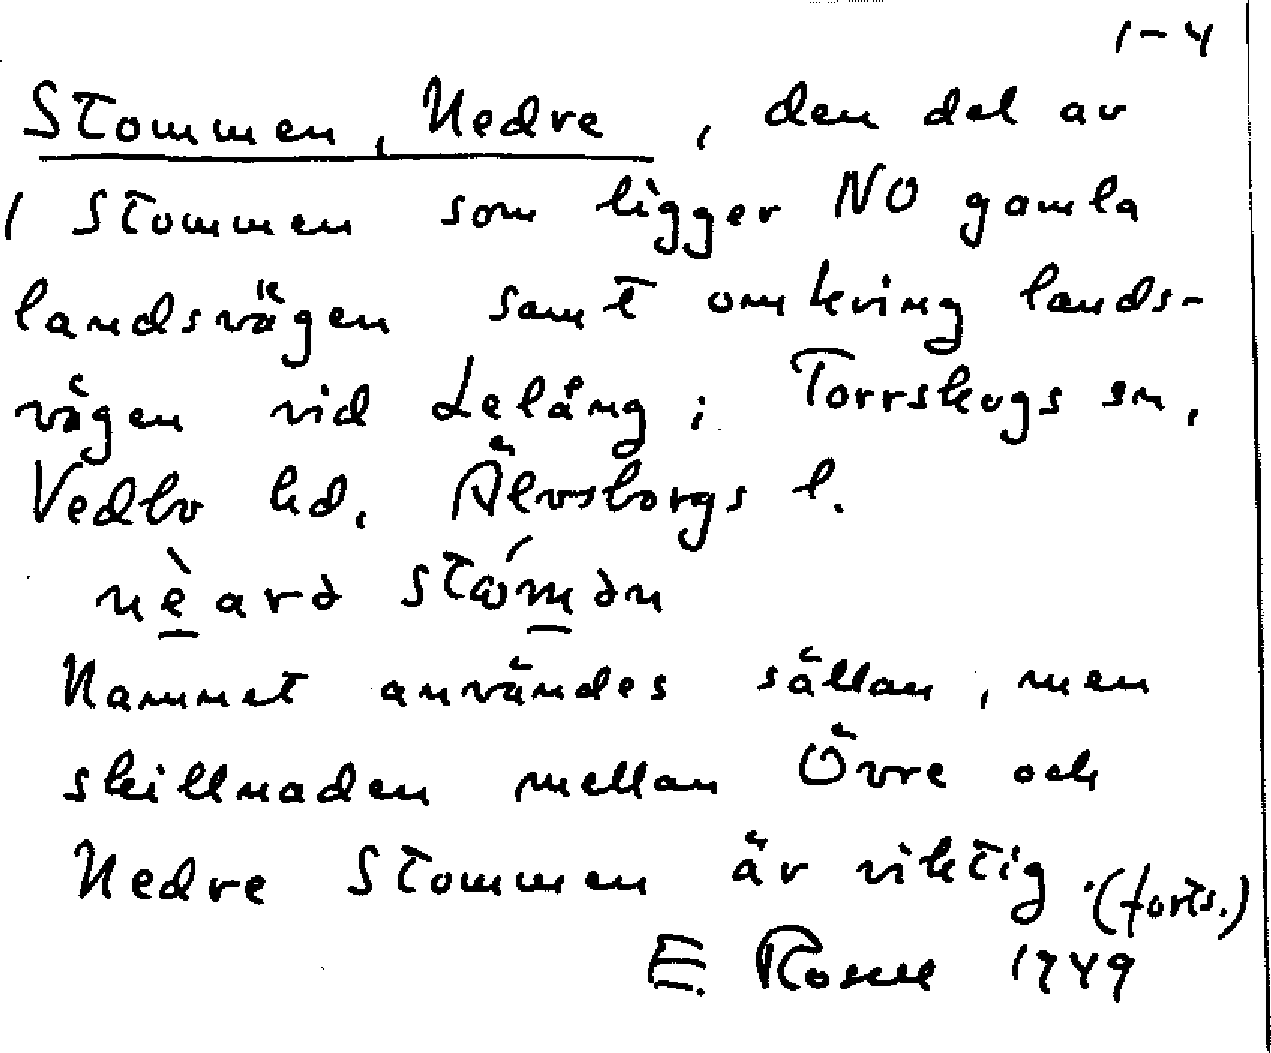 1-4
Stommen, Nedre, den del av
1 Stommen som ligger NO gamla
landsvägen samt omkring lands-
vägen vid Lelång; Torrskogs sn,
Vedbo hd. Älvsborgs l.
Namnet användes sällan, men
skillnaden mellan Övre och
Nedre Stommen är viktig. (forts.)
E. 1949